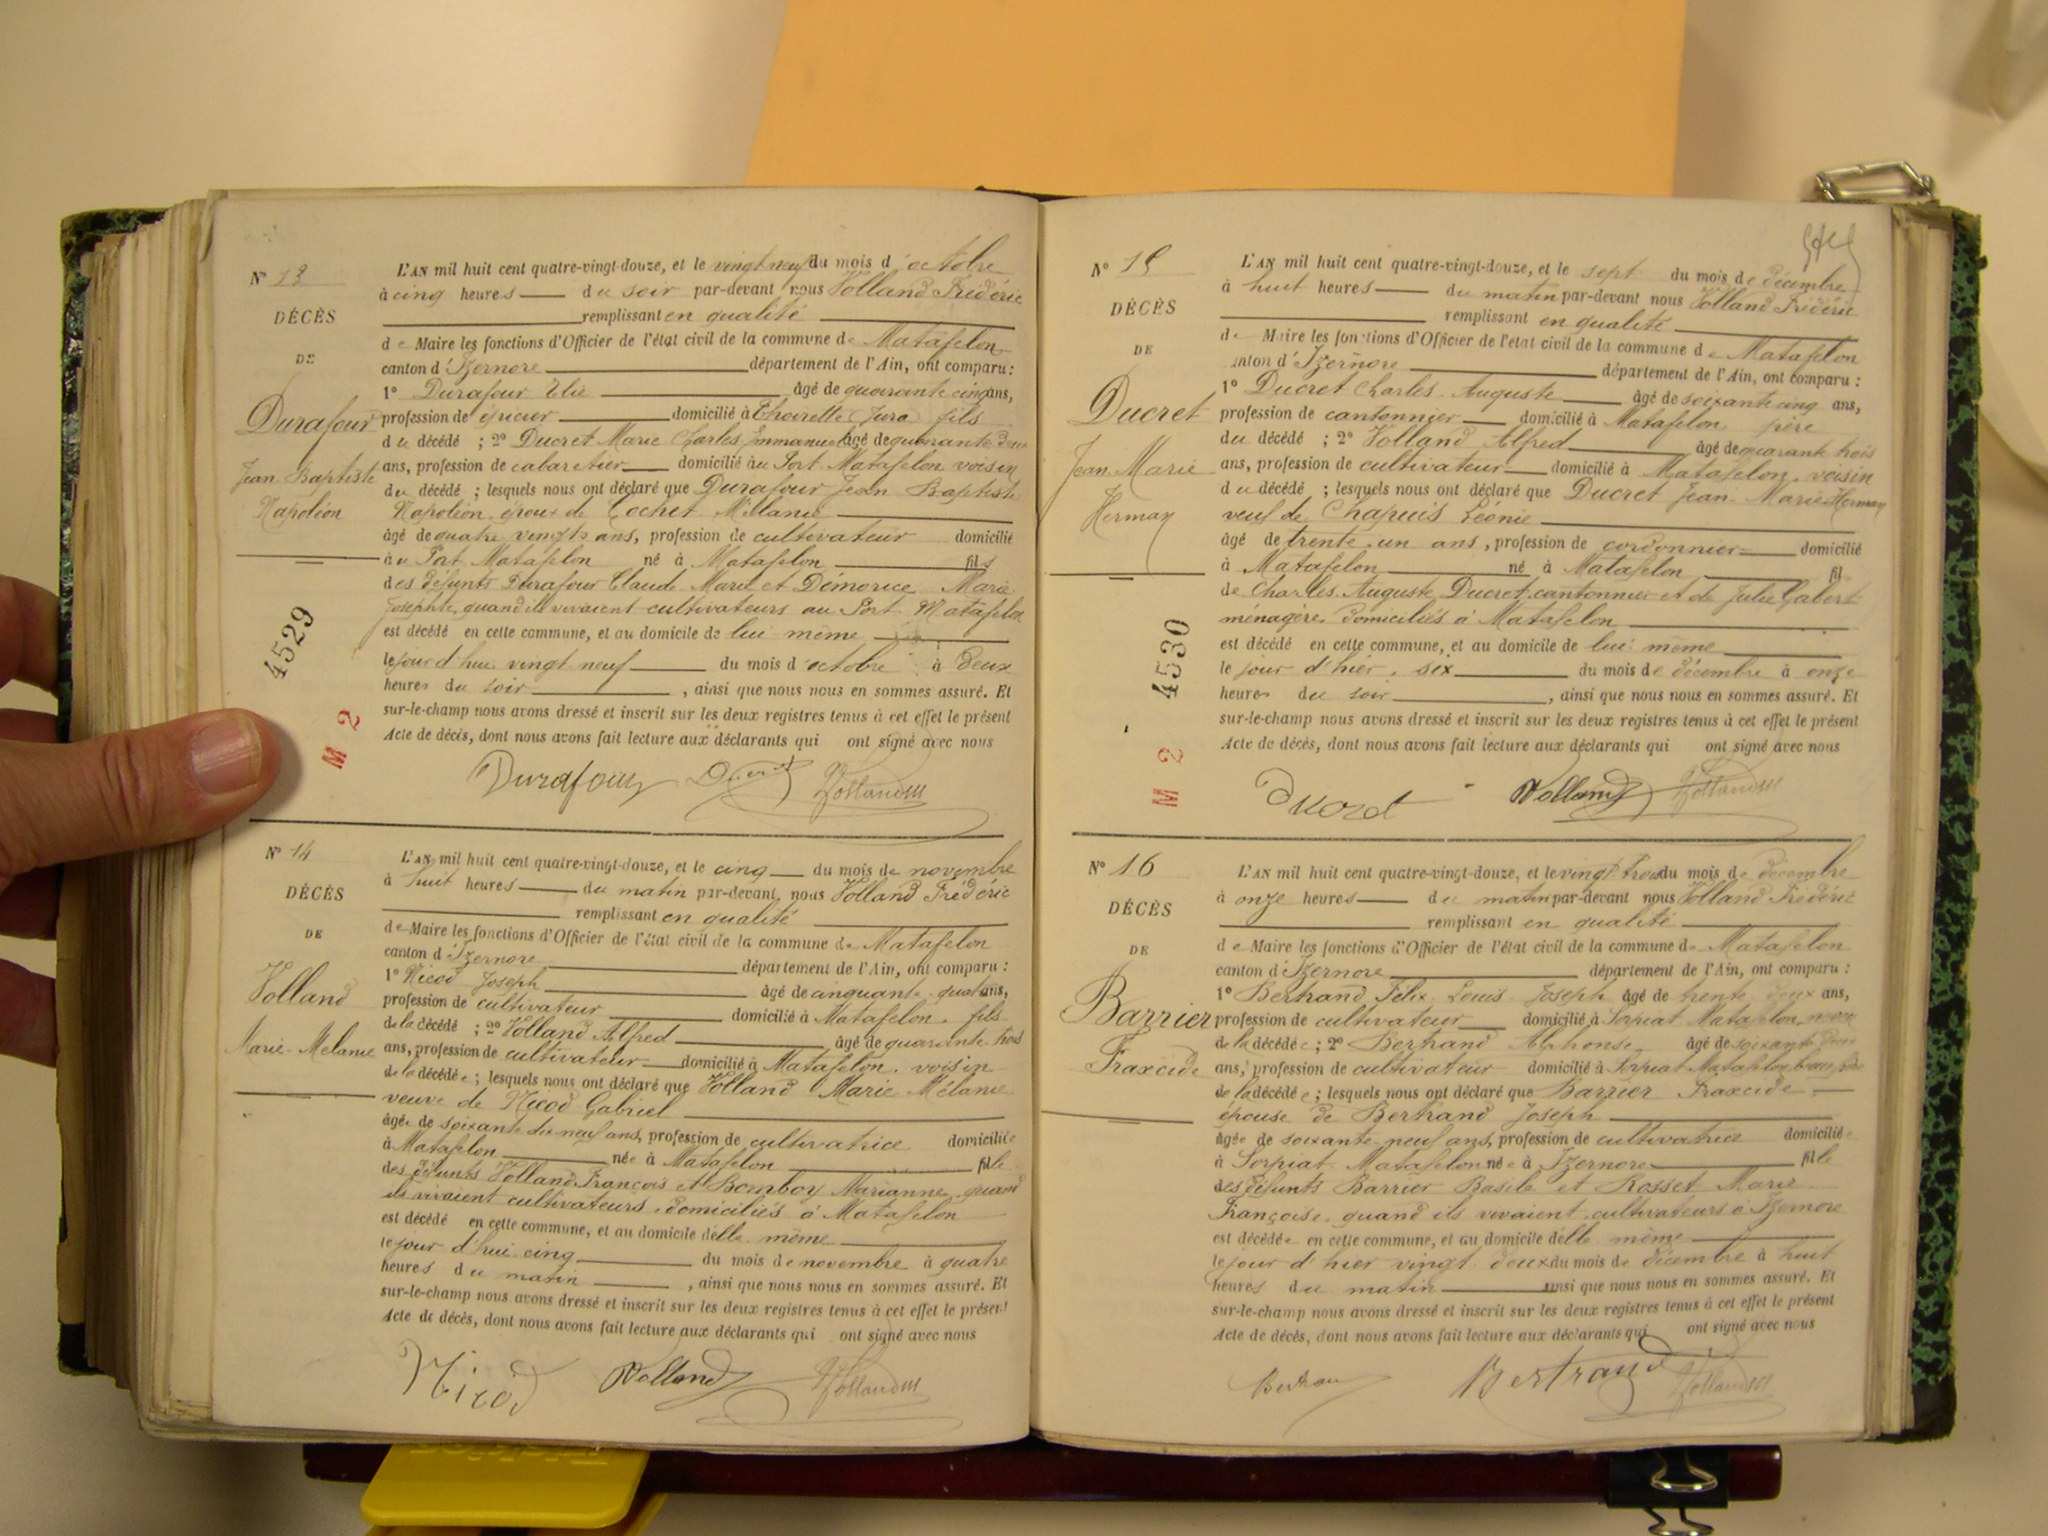 N° 13
DÉCÈS
DE
Durafour
Jean Baptiste
Napoléon
4529
M 2
L'AN mil huit cent quatre-vingt-douze, et le vingt neuf du mois d'octobre
à cinq heures du soir par-devant nous Volland Frédéric
remplissant en qualité
de Maire les fonctions d'Officier de l'état civil de la commune de Matafelon
canton d'Izernore département de l'Ain, ont comparu :
1° Durafour Elie âgé de quarante cinq ans,
profession de épicier domicilié à Thoirette Jura fils
du décédé ; 2° Ducret Marie Charles Emmanuel âgé de quarante
ans, profession de cabaretier domicilié au Port Matafelon voisin
du décédé ; lesquels nous ont déclaré que Durafour Jean Baptiste
Napoléon époux de Cochet Mélanie
âgé de quatre vingts ans, profession de cultivateur domicilié
au Port Matafelon né à Matafelon fils
des défunts Durafour Claude Marie et Démorice Marie
Josephte, quand ils vivaient cultivateurs au Port Matafelon
est décédé en cette commune, et au domicile de lui même
le jour d'hui vingt neuf du mois d'octobre à deux
heures du soir, ainsi que nous nous en sommes assuré. Et
sur-le-champ nous avons dressé et inscrit sur les deux registres tenus à cet effet le présent
Acte de décès, dont nous avons fait lecture aux déclarants qui ont signé avec nous
Durafour Ducret Volland
N° 14
DÉCÈS
DE
Volland
Marie-Mélanie
L'AN mil huit cent quatre-vingt-douze, et le cinq du mois de novembre
à huit heures du matin par-devant nous Volland Frédéric
remplissant en qualité
de Maire les fonctions d'Officier de l'état civil de la commune de Matafelon
canton d'Izernore département de l'Ain, ont comparu :
1° Nicod Joseph âgé de cinquante quatre ans,
profession de cultivateur domicilié à Matafelon. fils
de la décédé ; 2° Volland Alfred âgé de quarante trois
ans, profession de cultivateur domicilié à Matafelon. voisin
de la décédée ; lesquels nous ont déclaré que Volland Marie Mélanie
veuve de Nicod Gabriel
âgée de soixante dix neuf ans, profession de cultivatrice domiciliée
à Matafelon née à Matafelon fille
des défunts Volland François et Bomboy Marianne quand
ils vivaient cultivateurs domiciliés à Matafelon
est décédé en cette commune, et au domicile d'elle même
le jour d'hui cinq du mois de novembre à quatre
heures du matin, ainsi que nous nous en sommes assuré. Et
sur-le-champ nous avons dressé et inscrit sur les deux registres tenus à cet effet le présent
Acte de décès, dont nous avons fait lecture aux déclarants qui ont signé avec nous
Nicod Volland Volland
N° 15
DÉCÈS
DE
Ducret
Jean Marie
Herman
4530
M 2
L'AN mil huit cent quatre-vingt-douze, et le sept du mois de décembre
à huit heures du matin par-devant nous Volland Frédéric
remplissant en qualité
de Maire les fonctions d'Officier de l'état civil de la commune de Matafelon
canton d'Izernore département de l'Ain, ont comparu :
1° Ducret Charles Auguste âgé de soixante cinq ans,
profession de cantonnier domicilié à Matafelon père
du décédé ; 2° Volland Alfred âgé de quarante trois
ans, profession de cultivateur domicilié à Matafelon. voisin
du décédé ; lesquels nous ont déclaré que Ducret Jean Marie Herman
veuf de Chapuis Léonie
âgé de trente un ans, profession de cordonnier domicilié
à Matafelon né à Matafelon, fil
de Charles Auguste Ducret cantonnier et de Julie Gabert
ménagère domiciliés à Matafelon
est décédé en cette commune, et au domicile de lui même
le jour d'hier, six du mois de décembre à onze
heures du soir, ainsi que nous nous en sommes assuré. Et
sur-le-champ nous avons dressé et inscrit sur les deux registres tenus à cet effet le présent
Acte de décès, dont nous avons fait lecture aux déclarants qui ont signé avec nous
Ducret Volland Volland
N° 16
DÉCÈS
DE
Barrier
Fraxcide
L'AN mil huit cent quatre-vingt-douze, et le vingt trois du mois de décembre
à onze heures du matin par-devant nous Volland Frédéric
remplissant en qualité
de Maire les fonctions d'Officier de l'état civil de la commune de Matafelon
canton d'Izernore département de l'Ain, ont comparu :
1° Bertrand Félix Louis Joseph âgé de trente deux ans,
profession de cultivateur domicilié à Sorpiat Matafelon
de la décédée ; 2° Bertrand Alphonse âgé de soixante
ans, profession de cultivateur domicilié à Sorpiat Matafelon
de la décédée ; lesquels nous ont déclaré que Barrier Fraxcide
épouse de Bertrand Joseph
âgée de soixante neuf ans, profession de cultivatrice domiciliée
à Sorpiat Matafelon née à Izernore fille
des défunts Barrier Basile et Rosset Marie
Françoise. quand ils vivaient cultivateurs à Izernore
est décédée en cette commune, et au domicile d'elle même
le jour d'hier vingt deux du mois de décembre à huit
heures du matin ainsi que nous nous en sommes assuré. Et
sur-le-champ nous avons dressé et inscrit sur les deux registres tenus à cet effet le présent
Acte de décès, dont nous avons fait lecture aux déclarants qui ont signé avec nous
Bertrand Bertrand Volland